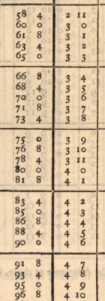 58 4 2 11
60 0 3 0
61 8 3 1
63 4 3 2
65 0 3 3
66 8 3 4
68 4 3 5
70 0 3 6
71 8 3 7
73 4 3 8
75 0 3 9
76 8 3 10
78 4 3 11
80 0 4 0
81 8 4 1
83 4 4 2
85 0 4 3
86 8 4 4
88 4 4 5
90 0 4 6
91 8 4 7
93 4 4 8
95 0 4 9
96 8 4 10